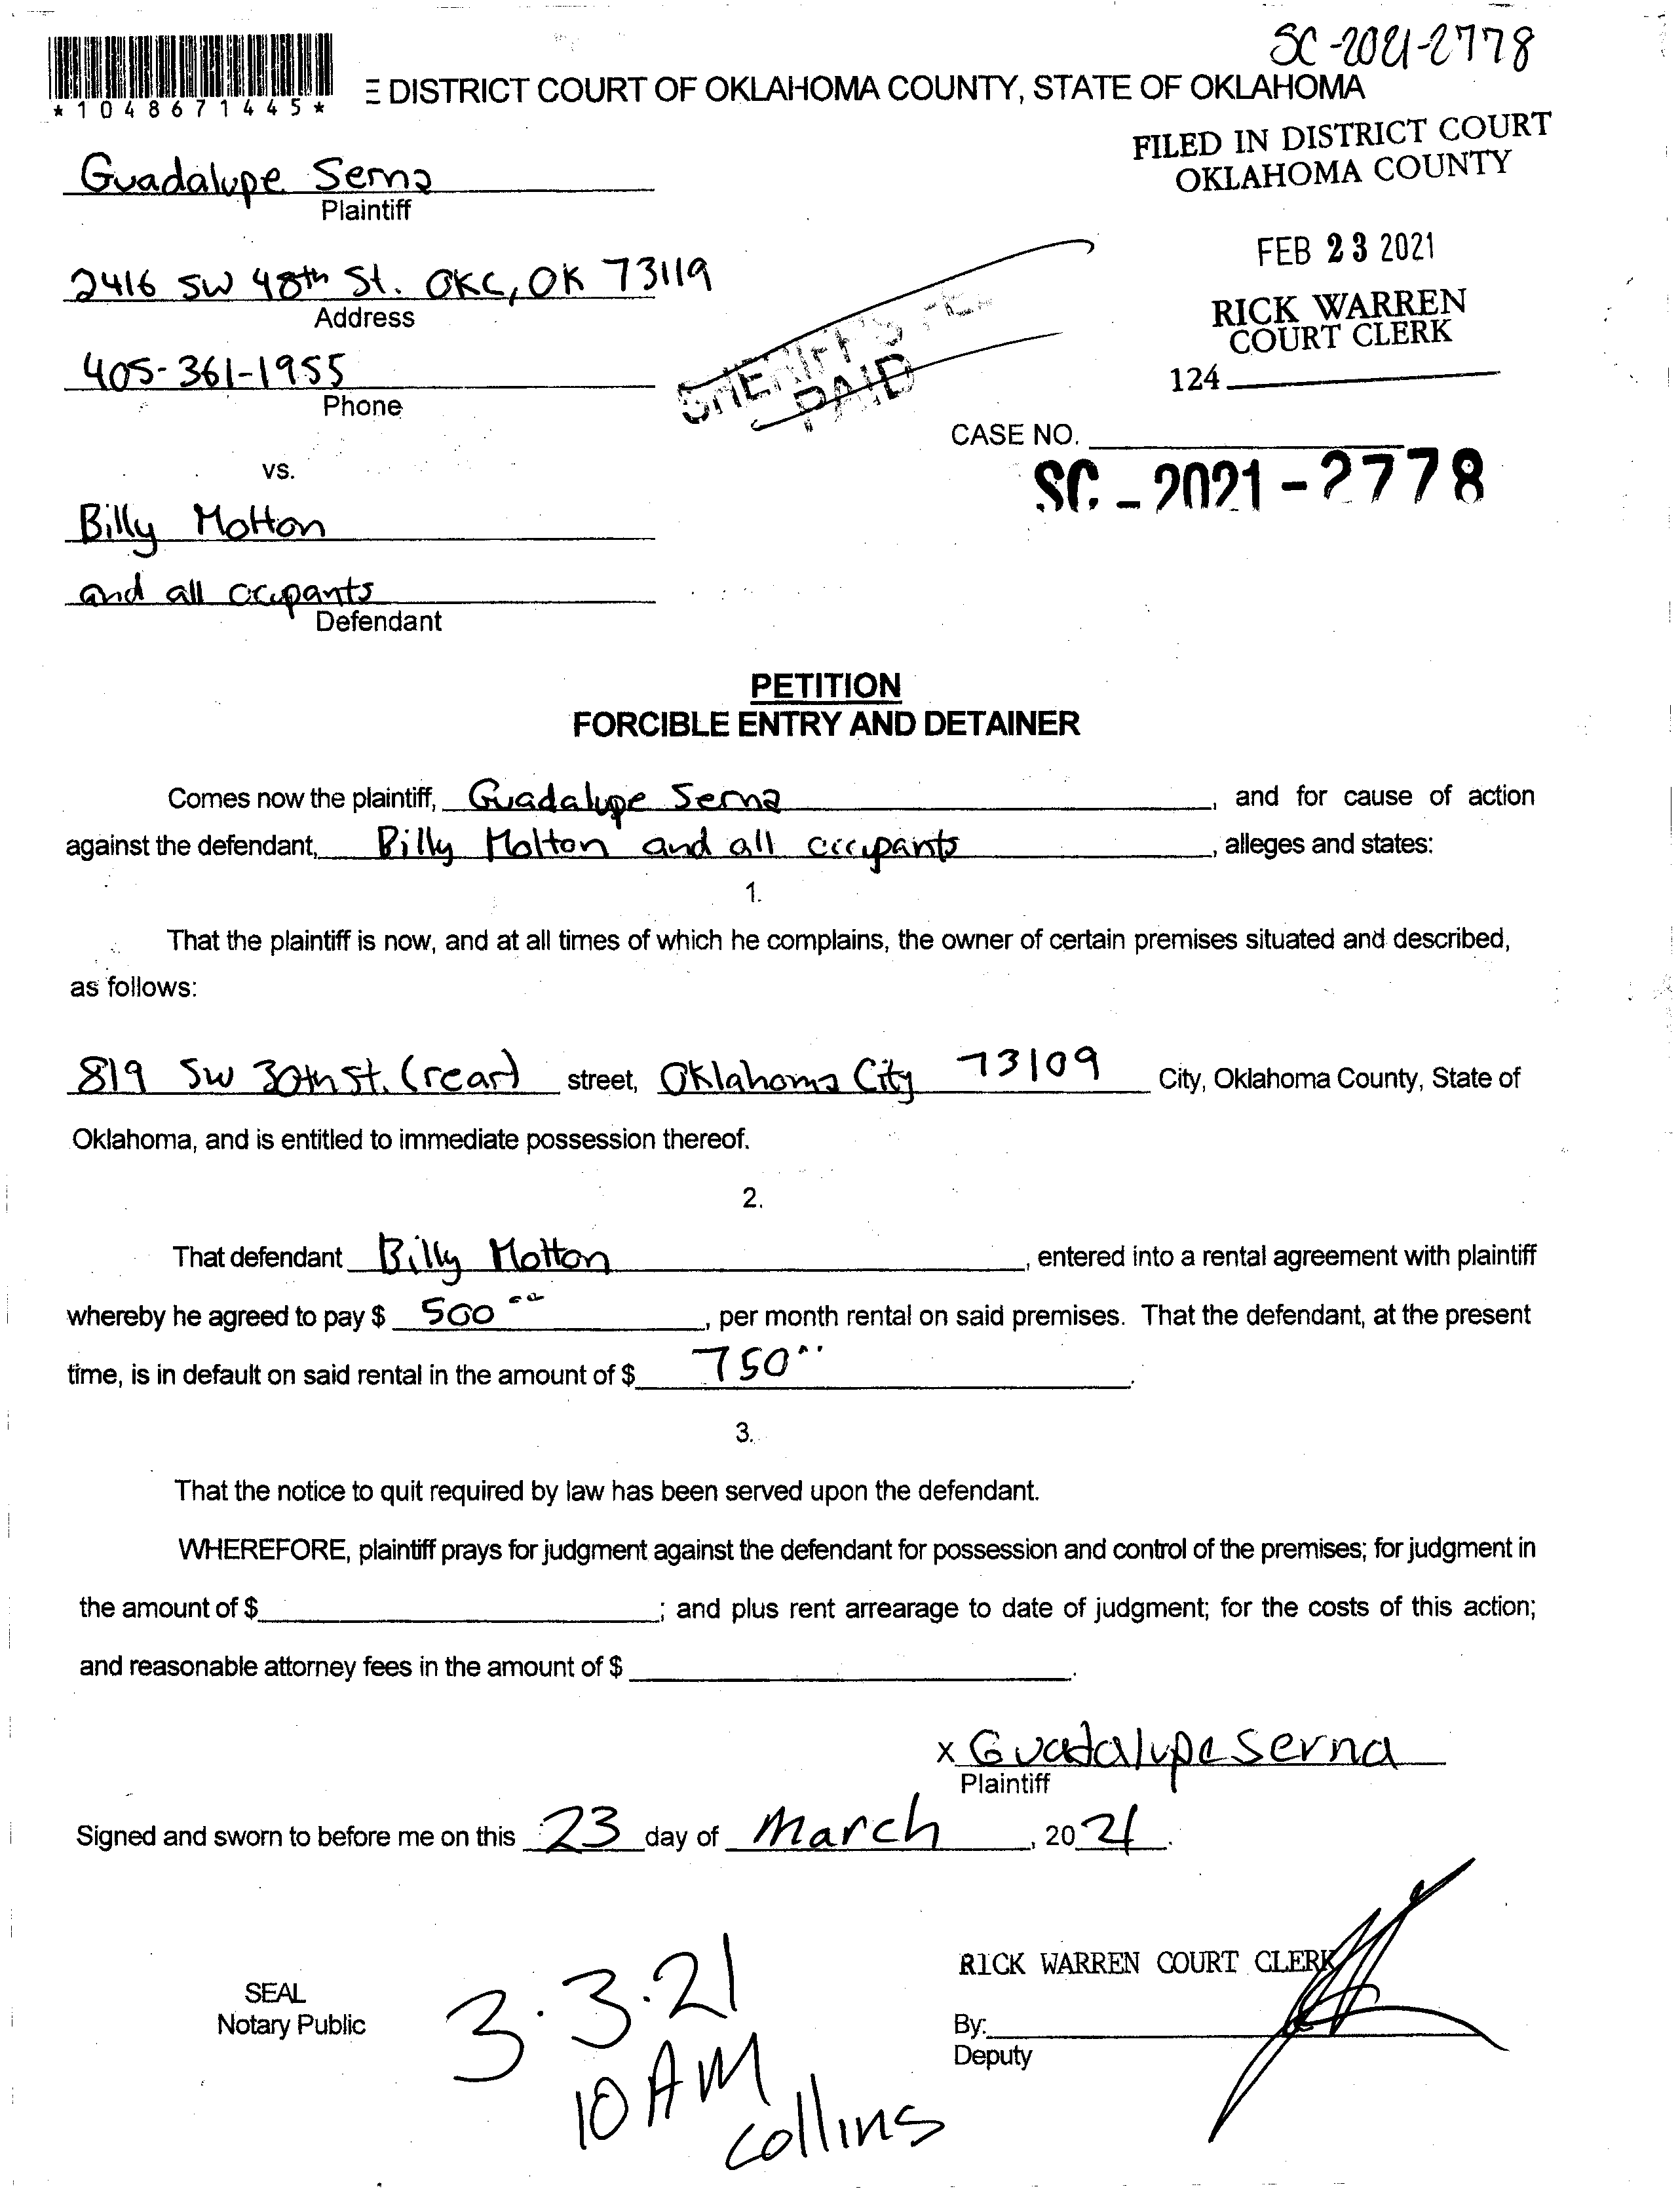 SC-2021-2778
*1048671445*
E DISTRICT COURT OF OKLAHOMA COUNTY, STATE OF OKLAHOMA
FILED IN DISTRICT COURT
OKLAHOMA COUNTY
Guadalupe Serna
Plaintiff
FEB 23 2021
2416 SW 48th St. OKC, OK 73119
Address
RICK WARREN
COURT CLERK
SHERIFF'S FEE
PAID
405-361-1955
Phone
124
CASE NO.
SC - 2021 - 2778
vs.
Billy Motton
and all occupants
Defendant
PETITION
FORCIBLE ENTRY AND DETAINER
Comes now the plaintiff, Guadalupe Serna, and for cause of action
against the defendant, Billy Molton and all occupants, alleges and states:
1.
That the plaintiff is now, and at all times of which he complains, the owner of certain premises situated and described,
as follows:
819 SW 30th St. (rear) street, Oklahoma City 73109 City, Oklahoma County, State of
Oklahoma, and is entitled to immediate possession thereof.
2.
That defendant Billy Motton, entered into a rental agreement with plaintiff
whereby he agreed to pay $ 500 00, per month rental on said premises. That the defendant, at the present
time, is in default on said rental in the amount of $ 750 00.
3.
That the notice to quit required by law has been served upon the defendant.
WHEREFORE, plaintiff prays for judgment against the defendant for possession and control of the premises; for judgment in
the amount of $ ; and plus rent arrearage to date of judgment; for the costs of this action;
and reasonable attorney fees in the amount of $ .
x Guadalupe Serna
Plaintiff
Signed and sworn to before me on this 23 day of March, 2021.
RICK WARREN COURT CLERK
SEAL
Notary Public
By:
Deputy
3.3.21
10 AM
Collins